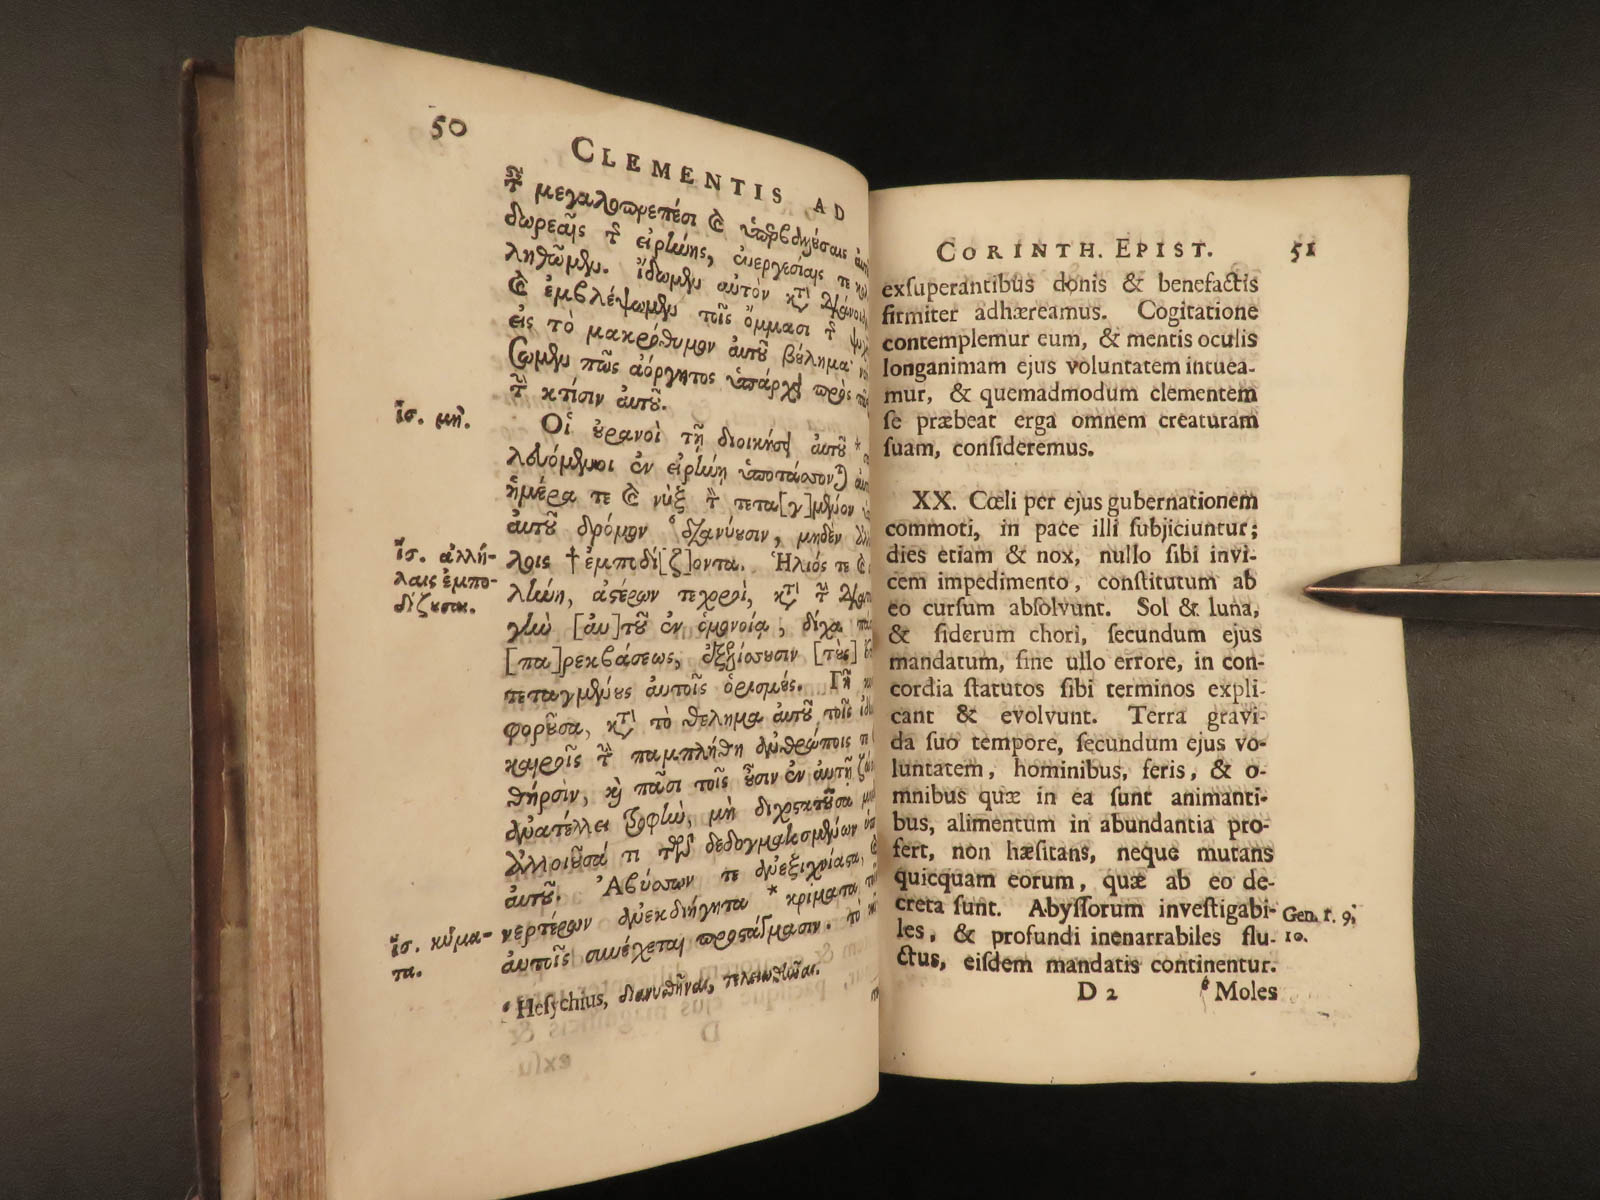 50
CLEMENTIS AD
τ͂ μεγαλοπρεπέσι & ὑπερβαλλούσαις
δωρεαῖς τ͂ εἰρήνης, εὐεργεσίαις τε
ληθῶμεν. ἴδωμεν αὐτὸν κτ͂
& ἐμβλέψωμεν τοῖς ὄμμασι τ͂
εἰς τὸ μακρόθυμον αὐτοῦ βούλημα·
σωμεν πῶς ἀόργητος ὑπάρχει πρὸς
τ͂ κτίσιν αὐτοῦ.
ἴσ. μὴ.
Οἱ οὐρανοὶ τῇ διοικήσει αὐτοῦ *
λευόμενοι ἐν εἰρήνῃ ὑποτάσσονται
ἡμέρα τε & νὺξ τ͂ τετα[γ]μένον
αὐτοῦ δρόμον ᵟ διανύουσιν, μηδὲν
ἴσ. ἀλλή-
λαις ἐμπο-
δίζουσαι.
λοις † ἐμπιδί[ζ]οντα. Ἥλιός τε &
λήνη, ἀστέρων τε χοροὶ, κτ͂ τ͂
γὴν [αὐ]τοῦ ἐν ὁμονοίᾳ, δίχα
[πα]ρεκβάσεως, ἐξελίσσουσιν [τοὺς]
τεταγμένους αὐτοῖς ὁρισμούς. Γῆ
φοροῦσα, κτ͂ τὸ θέλημα αὐτοῦ τοῖς
καιροῖς τ͂ παμπλήθη ἀνθρώποις
θηρσὶν, καὶ πᾶσι τοῖς οὖσιν ἐν αὐτῇ
ἀνατέλλει τροφὴν, μὴ διχοστατοῦσα
ἀλλοιοῦσά τι τῶν δεδογματισμένων
αὐτοῦ. Ἀβύσσων τε ἀνεξιχνίαστα,
ἴσ. κύμα-
τα.
νερτέρων ἀνεκδιήγητα * κρίματα
αὐτοῖς συνέχεται προστάγμασιν. τὸ
ᵟ Heſychius, διανυθῆναι, τελειωθῆναι.
CORINTH. EPIST. 51
exſuperantibus donis & benefactis
firmiter adhæreamus. Cogitatione
contemplemur eum, & mentis oculis
longanimam ejus voluntatem intuea-
mur, & quemadmodum clementem
ſe præbeat erga omnem creaturam
ſuam, conſideremus.
XX. Cœli per ejus gubernationem
commoti, in pace illi ſubjiciuntur;
dies etiam & nox, nullo ſibi invi-
cem impedimento, conſtitutum ab
eo curſum abſolvunt. Sol & luna,
& ſiderum chori, ſecundum ejus
mandatum, ſine ullo errore, in con-
cordia ſtatutos ſibi terminos expli-
cant & evolvunt. Terra gravi-
da ſuo tempore, ſecundum ejus vo-
luntatem, hominibus, feris, & o-
mnibus quæ in ea ſunt animanti-
bus, alimentum in abundantia pro-
fert, non hæſitans, neque mutans
quicquam eorum, quæ ab eo de-
creta ſunt. Abyſſorum inveſtigabi-
les, & profundi inenarrabiles flu-
ctus, eiſdem mandatis continentur.
Gen. 1. 9,
10.
D 2 Moles